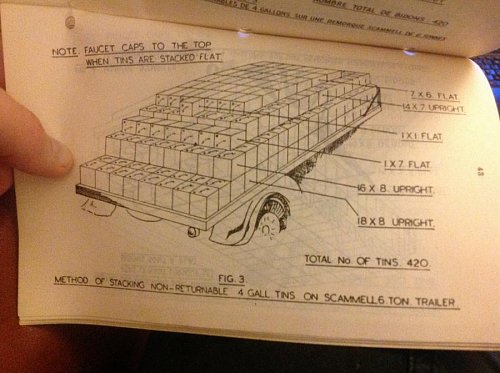 OMBRE TOTAL DE BIDONS. 420
ABLES DE 4 GALLONS SUR UNE REMORQUE SCAMMELL DE 6 TONNES
NOTE. FAUCET CAPS TO THE TOP
WHEN TINS ARE STACKED FLAT.
7 X 6. FLAT.
14 X 7 UPRIGHT.
1 X 1. FLAT.
1 X 7. FLAT.
16 X 8. UPRIGHT.
18 X 8. UPRIGHT.
TOTAL No. OF TINS. 420.
FIG. 3
METHOD OF STACKING NON-RETURNABLE 4 GALL TINS ON SCAMMELL 6 TON TRAILER.